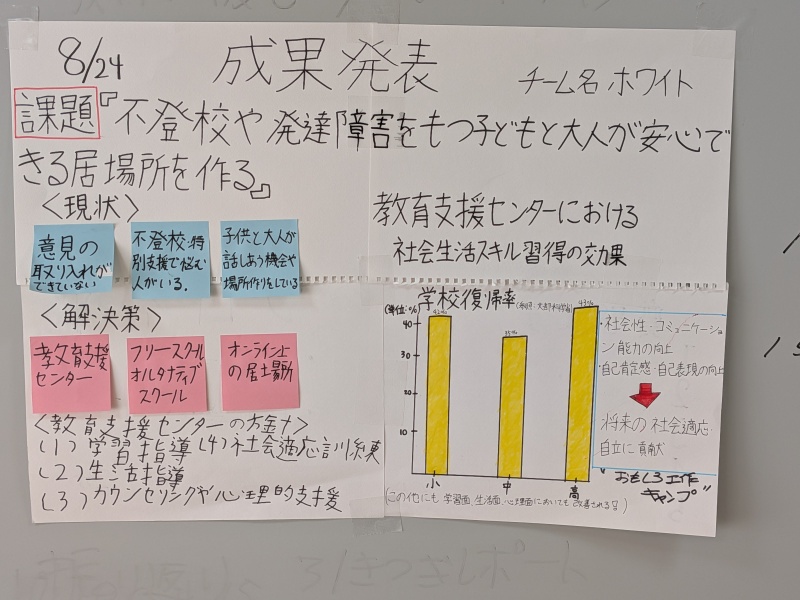 8/24 成果発表 チーム名 ホワイト
課題『不登校や発達障害をもつ子どもと大人が安心で
きる居場所を作る』
<現状>
意見の
取り入れが
できていない
不登校・特
別支援で悩む
人がいる。
子供と大人が
話しあう機会や
場所作りをしている
<解決策>
教育支援
センター
フリースクール
オルタナティブ
スクール
オンライン上
の居場所
<教育支援センターのお金>
(1)学習指導 (4)社会適応訓練
(2)生活指導
(3)カウンセリングや心理的支援
教育支援センターにおける
社会生活スキル習得の効果
(単位:%) 学校復帰率
42%
35%
43%
40
30
20
10
小 中 高
・社会性・コミュニケーショ
ン能力の向上
・自己肯定感・自己表現の向上
将来の社会適応・
自立に貢献
(この他にも 学習面、生活面、心理面においても改善される。)
"おもしろ工作
キャンプ"